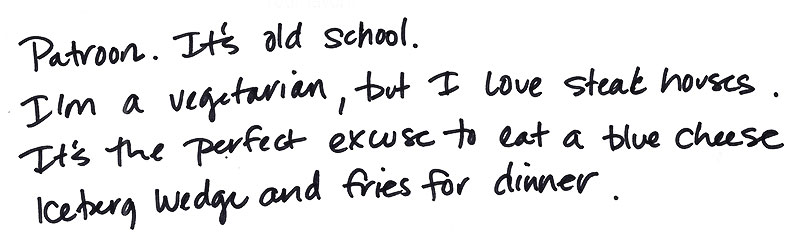 Patroon. It's old school.
I'm a vegetarian, but I love steak houses.
It's the perfect excuse to eat a blue cheese
Iceberg wedge and fries for dinner.